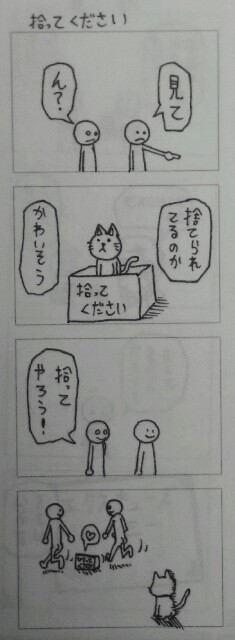 拾ってください
見て
ん?
捨てられ
てるのか
かわいそう
拾って
ください
拾って
やろう!